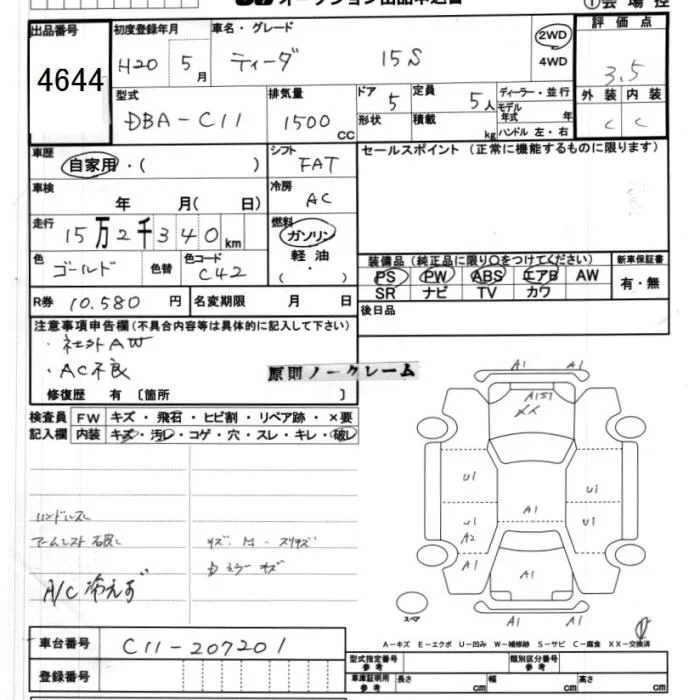 オークション出品申込書
①会場控
出品番号 4644
初度登録年月 H20 5月
車名・グレード ティーダ 15S
2WD
4WD
評価点 3.5
外装 内装
C C
型式 DBA-C11
排気量 1500 CC
ドア 5 定員 5人
形状 積載 kg
ディーラー・並行
モデル年式 年
ハンドル 左・右
車歴 自家用・( )
シフト FAT
セールスポイント (正常に機能するものに限ります)
車検 年 月( 日)
冷房 AC
走行 15万2千340km
燃料 ガソリン
軽油
( ・ )
色 ゴールド 色替 色コード C42
装備品 (純正品に限り○をつけてください) 新車保証書
PS PW ABS エアB AW 有・無
SR ナビ TV カワ
R券 10.580円 名変期限 月 日
後日品
注意事項申告欄 (不具合内容等は具体的に記入して下さい)
・社外AW
・AC不良
原則ノークレーム
修復歴 有 〔箇所 〕
検査員 FW キズ・飛石・ヒビ割・リペア跡・×要
記入欄 内装 キズ・汚レ・コゲ・穴・スレ・キレ・破レ
A1 A1
A1S1
XX
U1 U1
A1
U1 U1
A2
A1 A1
A1 A1
ハンドルスレ
アームレスト破レ
A/C冷えず
スペア
A-キズ E-エクボ U-凹み W-補修跡 S-サビ C-腐食 XX-交換済
車台番号 C11-207201
登録番号
型式指定番号 参考 類別区分番号 参考
車庫証明用 参考 長さ cm 幅 cm 高さ cm